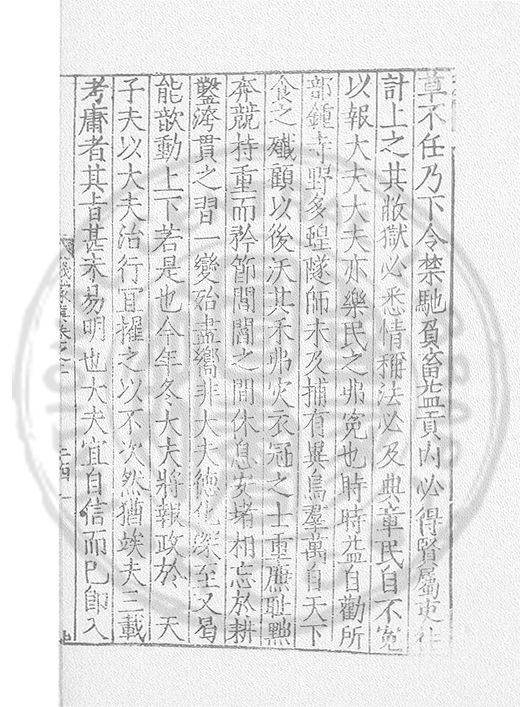 草不任乃下令禁馳負畜益貢內必得賢屬吏任
計上之其敝獄必悉情稱法必及典章民自不冤
以報大夫大夫亦樂民之弗冤也時時益自勸所
部鍾寺野多蝗隧師未及捕有異鳥羣萬自天下
食之殲顧以後沃其禾弗灾衣冠之士重廉恥黜
奔競持重而矜節閭閻之間休息安堵相忘於耕
鑿濟貫之習一變殆盡嚮非大夫德化深至又曷
能歆動上下若是也今年冬大夫將報政於 天
子夫以大夫治行宜擢之以不次然猶竢夫二載
考庸者其旨甚未易明也大夫宜自信而已卽入